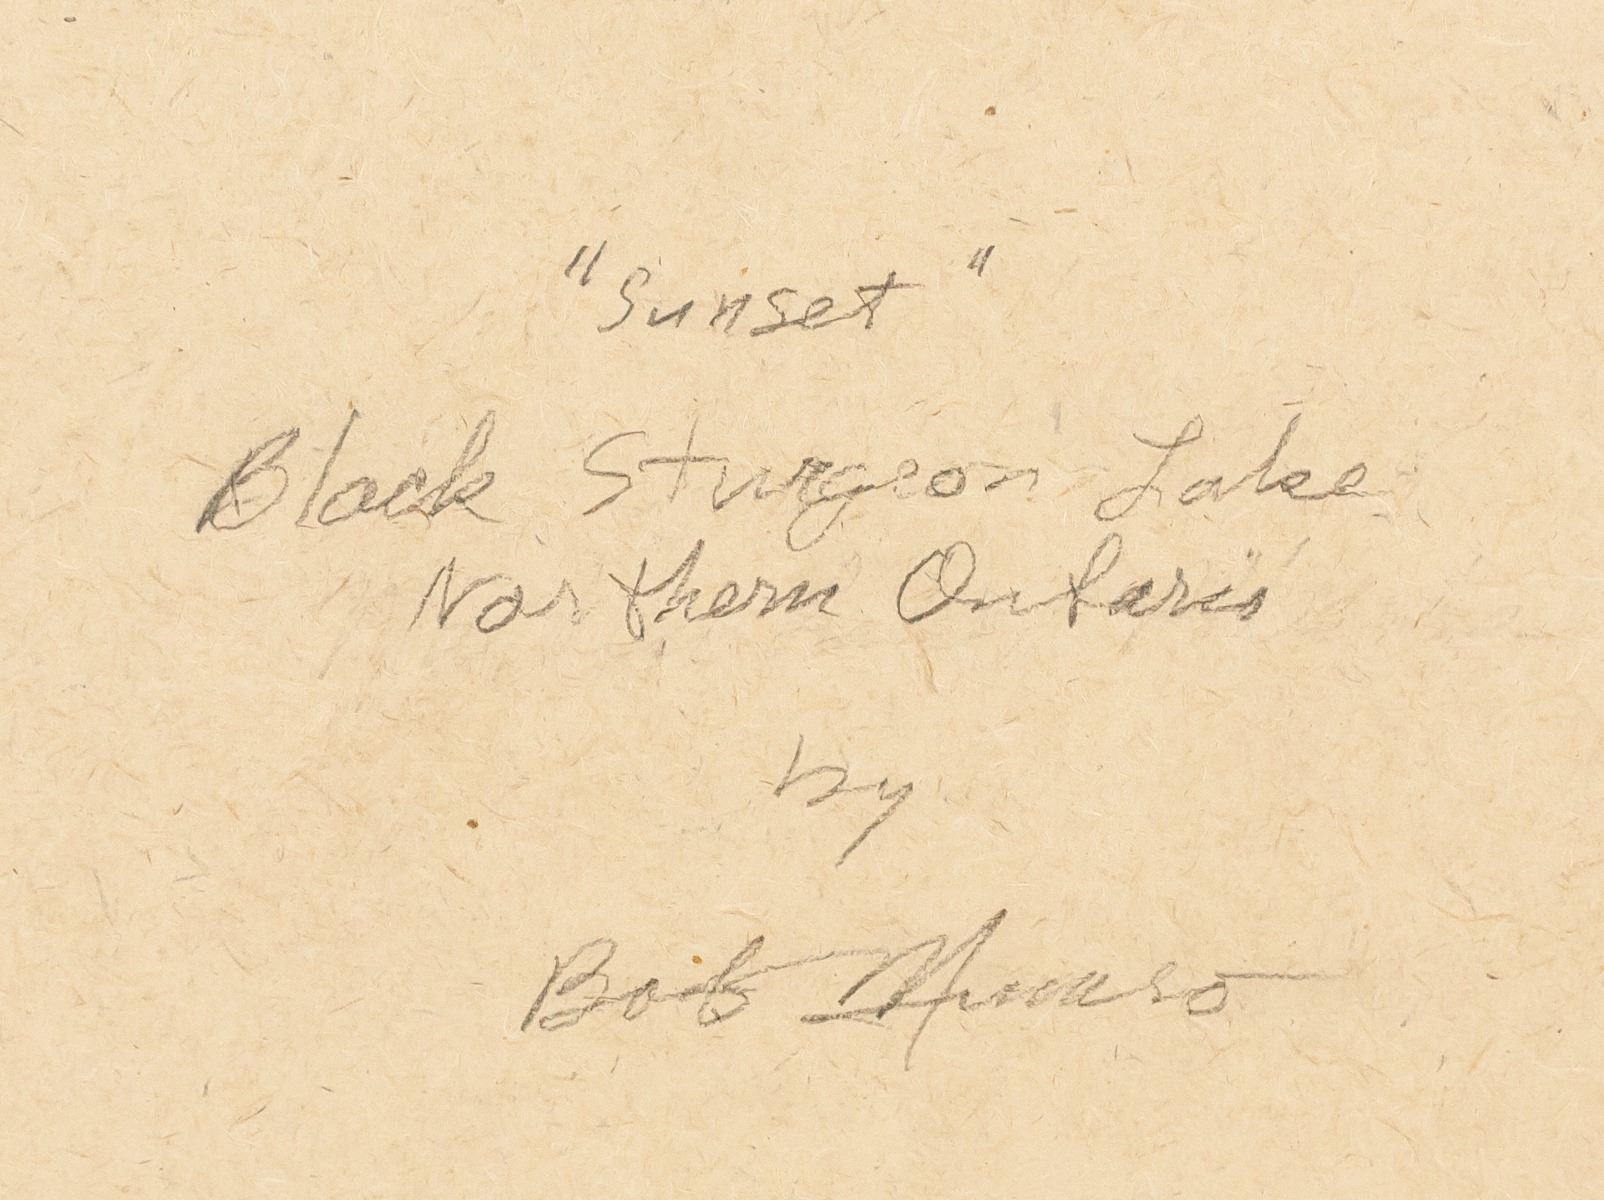 "Sunset"
Black Sturgeon Lake
Northern Ontario
by
Bob Munro